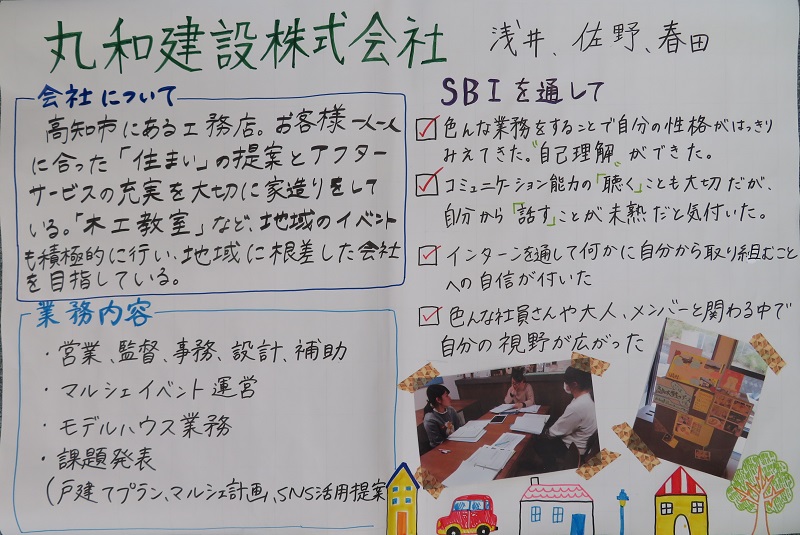 丸和建設株式会社
浅井、佐野、春田
会社について
高知市にある工務店。お客様一人一人
に合った「住まい」の提案とアフター
サービスの充実を大切に家造りをして
いる。「木工教室」など、地域のイベント
も積極的に行い、地域に根差した会社
を目指している。
業務内容
・営業、監督、事務、設計、補助
・マルシェイベント運営
・モデルハウス業務
・課題発表
(戸建てプラン、マルシェ計画、SNS活用提案
SBIを通して
色んな業務をすることで自分の性格がはっきり
みえてきた。"自己理解"ができた。
コミュニケーション能力の「聴く」ことも大切だが、
自分から「話す」ことが未熟だと気付いた。
インターンを通して何かに自分から取り組むこと
への自信が付いた
色んな社員さんや大人、メンバーと関わる中で
自分の視野が広がった